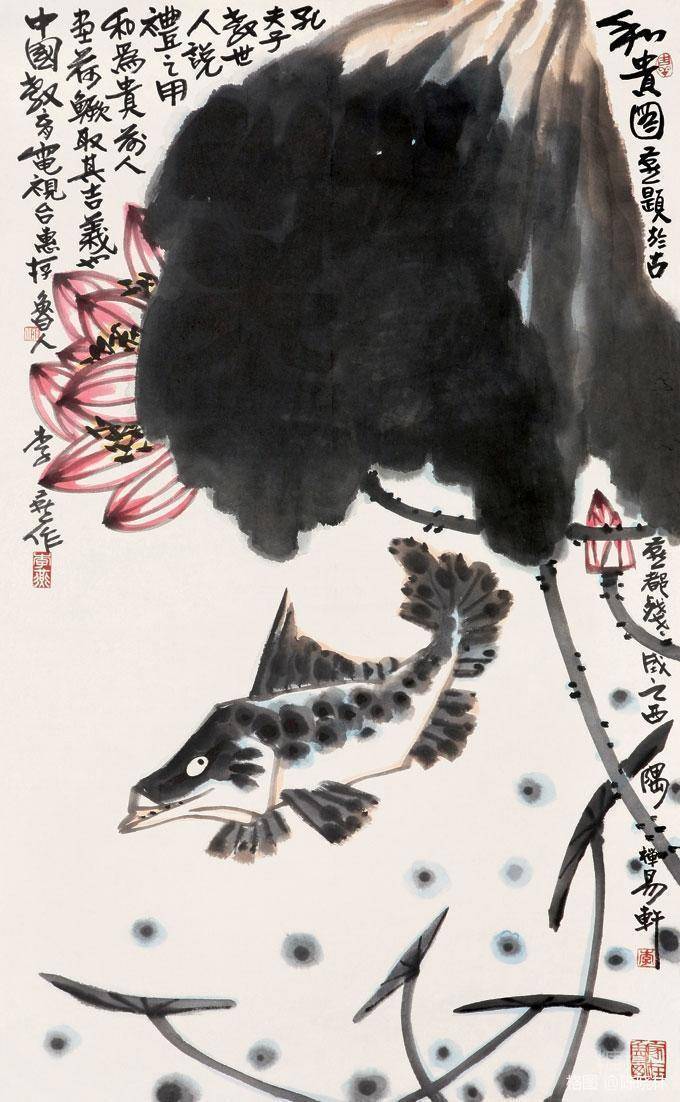 和貴圖 燕題於古燕都殘城之西隅禪易軒
孔
夫子
教世
人說
禮之用
和為貴前人
畫荷鱖取其吉義也
中國教育電視台惠存 魯人
李燕作
李燕